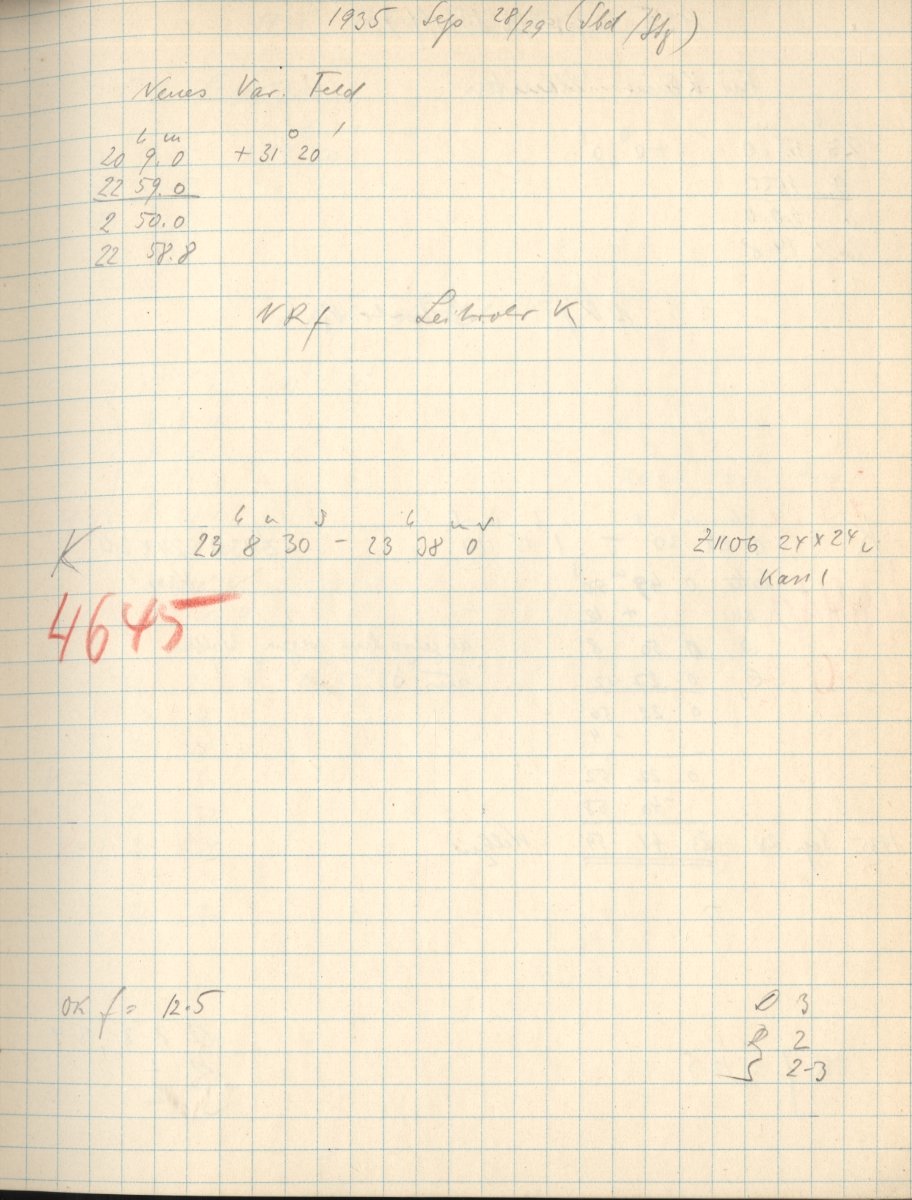 1935 Sep 28/29 (Sbd/Stg)
Neues Var. Feld
20h 9m.0 + 31° 20'
22 59.0
2 50.0
22 58.8
NRf Leitrohr K
K 23h 8m 30s - 23h 38m 0s Z1106 24x24
Kass 1
4645
OK f = 12.5
D 3
R 2
S 2-3